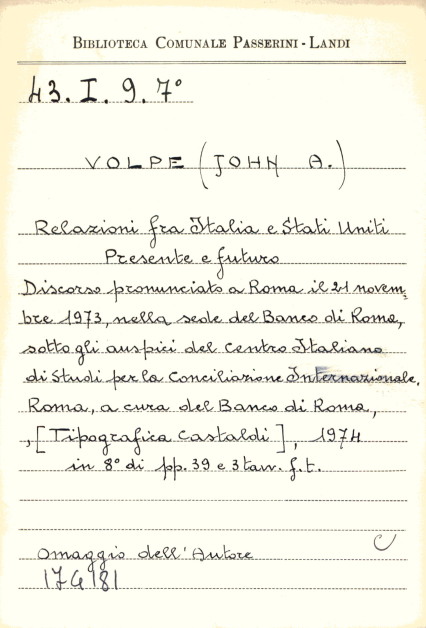 BIBLIOTECA COMUNALE PASSERINI - LANDI
43. I. 9. 7°
VOLPE (JOHN A.)
Relazioni fra Italia e Stati Uniti
Presente e futuro
Discorso pronunciato a Roma il 21 novem=
bre 1973, nella sede del Banco di Roma,
sotto gli auspici del Centro Italiano
di Studi per la Conciliazione Internazionale,
Roma, a cura del Banco di Roma,
, [Tipografica Castaldi], 1974
in 8° di pp. 39 e 3 tavv. f. t.
C
Omaggio dell'Autore
174181